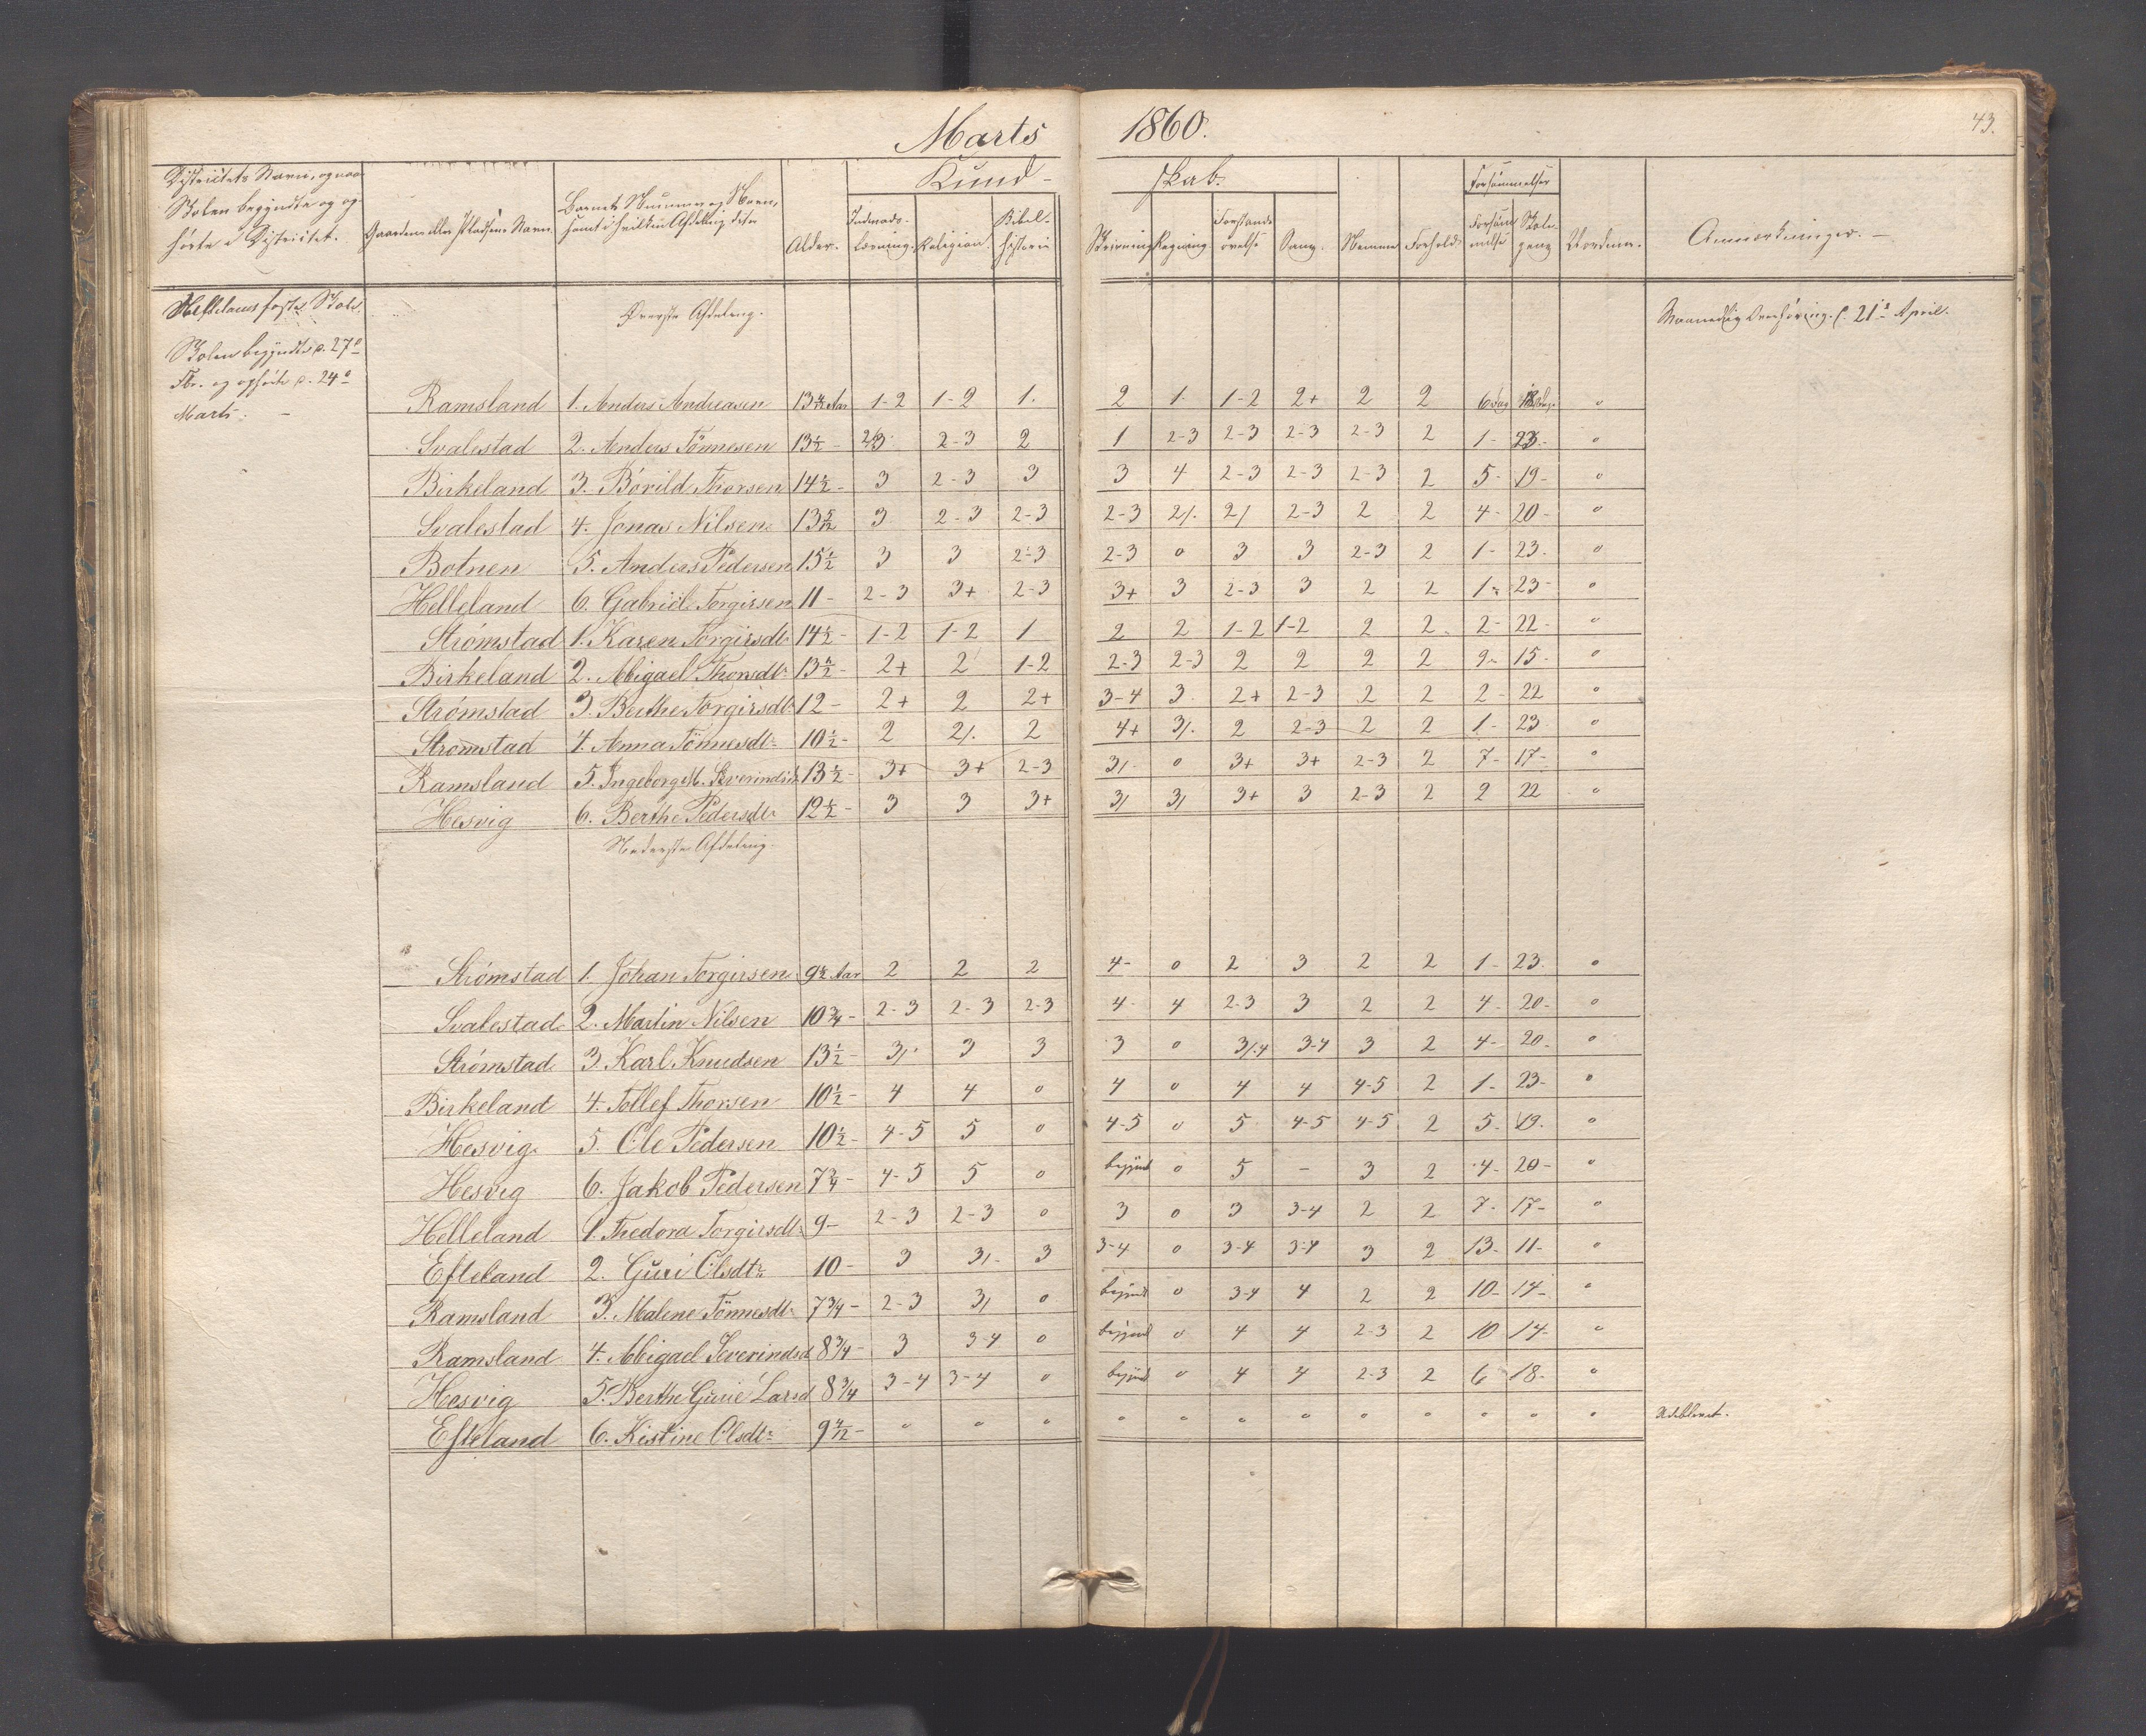 Marts 1860. 43.
Kund- skab.
Districtets Navn, og naar Skolen begyndte og ophørte i Districtet.
Gaardens eller Pladsens Navn.
Barnets Nummer og Navn, samt i hvilken Afdeling det er
Alder.
Indenads-læsning. Religion. Bibel-historie Skrivning Regning Forstands øvelse Sang. Nemme Forhold Forsømmelser Forsømmelse Skole-gang Anmærkninger.
Skolen begyndte d. 27de
Fbr. og ophørte d. 24de
Marts. -
Øverste Afdeling.
Maanedlig Overhøring d. 21de April.
Ramsland 1. Anders Andreasen Aar 1-2 1-2 1. 2 1. 1-2 2+ 2 2 6 Dag 18 Dag. o
Svalestad 2. Anders Tönnesen 13½ - 2/3 2-3 2 1 2-3 2-3 2-3 2-3 2 1- 23- o
Birkeland 3. Børild Thorsen 14½ - 3 2-3 3 3 4 2-3 2-3 2-3 2 5- 19- o
Svalestad 4. Jonas Nilsen 3 2-3 2-3 2-3 2/. 2/ 2-3 2 2 4- 20- o
Botnen 5. Anders Pedersen 15½ 3 3 2-3 2-3 o 3 3 2-3 2 1- 23. o
Helleland 6. Gabriel Torgirsen 11- 2-3 3+ 2-3 3+ 3 2-3 3 2 2 1- 23- o
Strömstad 1. Karen Torgirsdtr 14½ - 1-2 1-2 1 2 2 1-2 1-2 2 2 2- 22- o
Birkeland 2. Abigael Thorsdtr 13½ - 2+ 2 1-2 2-3 2-3 2 2 2 2 9- 15- o
Strömstad 3. Berthe Torgirsdtr 12- 2+ 2 2+ 3-4 3. 2+ 2-3 2 2 2- 22 o
Strömstad 4. Anna Tönnesdtr 10½- 2 2/. 2 4+ 3/. 2 2-3 2 2 1- 23 o
Ramsland 5. Ingeborg M. Severinsdtr 13½- 3+ 3+ 2-3 3/. o 3+ 3+ 2-3 2 7- 17- o
Hesvig 6. Berthe Pedersdtr 12½- 3 3 3+ 3/ 3/ 3+ 3 2-3 2 2 22 o
Nederste Afdeling.
Strömstad 1. Johan Torgirsen 9½ Aar 2 2 2 4- o 2 3 2 2 1- 23. o
Svalestad 2. Martin Nilsen 10¾- 2-3 2-3 2-3 4- 4 2-3 3 2 2 4- 20- o
Strömstad 3. Karl Knudsen 13½- 3/. 3 3 3 o 3/.4 3-4 3 2 4- 20- o
Birkeland 4. Tollef Thorsen 10½- 4 4 o 4 o 4 4 4-5 2 1- 23- o
Hesvig 5. Ole Pedersen 10½- 4-5 5 o 4-5 o 5 4-5 4-5 2 5- 19. o
Hesvig 6. Jakob Pedersen 7¾- 4-5 5 o begynd o 5 - 3 2 4- 20- o
Helleland 1. Thedora Torgirsdtr 9- 2-3 2-3 o 3 o 3 3-4 2 2 7- 17- o
Efteland 2. Guri Olsdtr 10- 3 3/- 3 3-4 o 3-4 3-4 3 2 13- 11- o
Ramsland 3. Malene Tönnesdtr 7¾- 2-3 3/ o begynd o 3-4 4 2 2 10- 14- o
Ramsland 4. Abigael Severindsd 8¾- 3 3-4 o begynd o 4 4 2-3 2 10 14- o
Hesvig 5. Berthe Gurie Larsd 8¾ 3-4 3-4 o begynd o 4 4 2-3 2 6 18- o
Efteland 6. Kistine Olsdtr - o o o o o o o o o o o o Udeblevet.